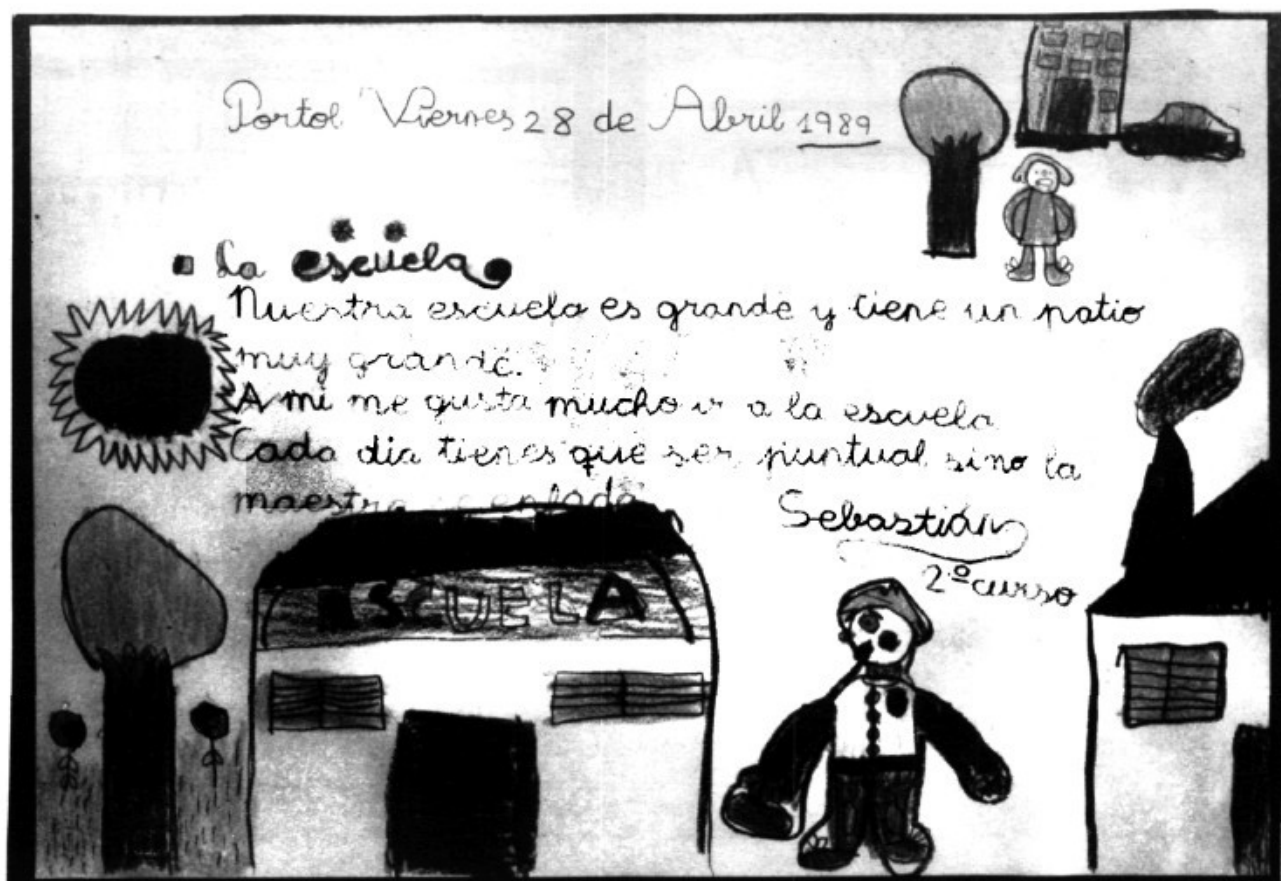 Portol Viernes 28 de Abril 1989
La escuela
Nuestra escuela es grande y tiene un patio
muy grande.
A mi me gusta mucho ir a la escuela
Cada dia tienes que ser puntual sino la
maestra se enfada
Sebastián
2º curso
ESCUELA